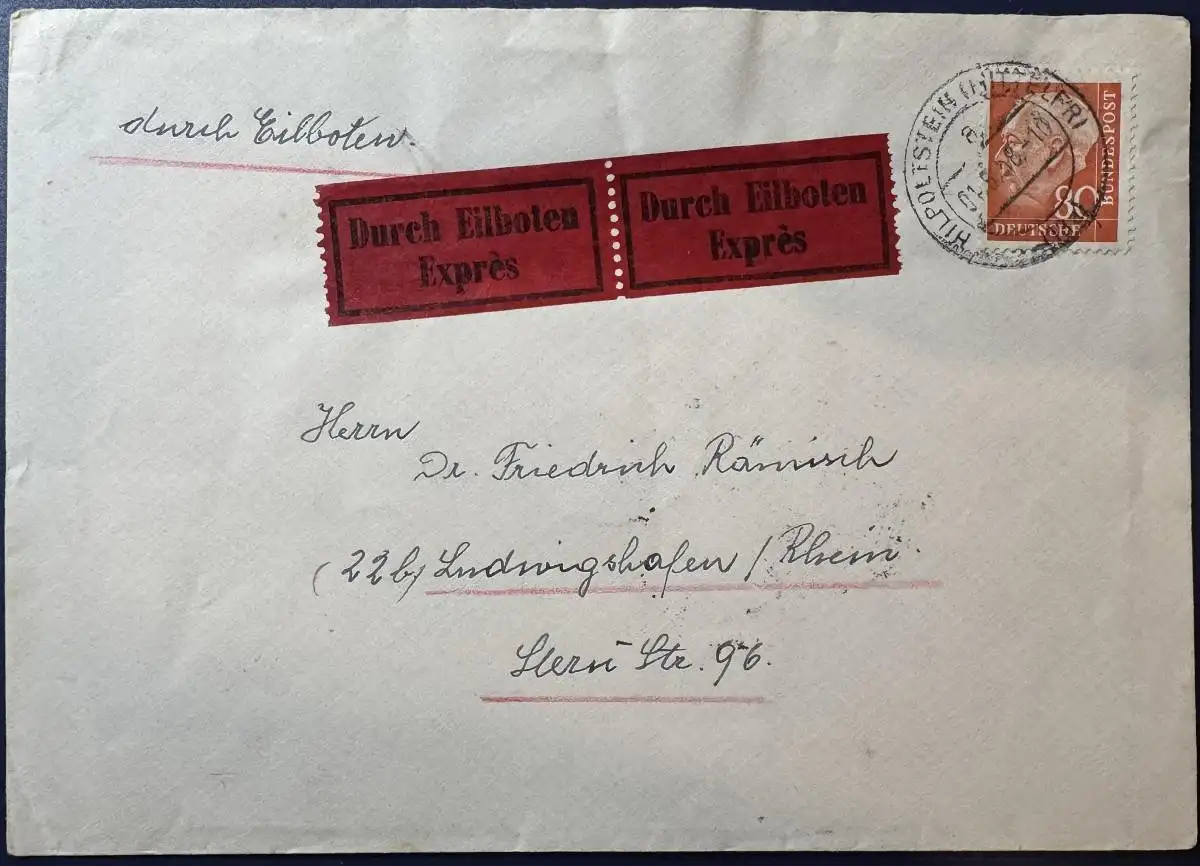 durch Eilboten.
Durch Eilboten
Exprès
Durch Eilboten
Exprès
HILPOLTSTEIN (MITTELFR)
80
DEUTSCHE
BUNDESPOST
Herrn
Dr. Friedrich Rämisch
(22b) Ludwigshafen / Rhein
Stern Str. 96.